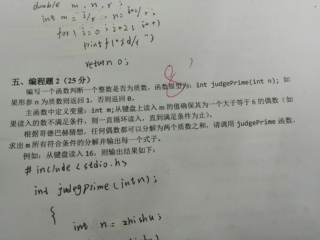 double m, n, r;
int m = 
for (i=0; i<2; i++)
printf("%d/"
return 0;
五、编程题2（25分）
8
编写一个函数判断一个整数是否为质数，函数原型为：int judgePrime(int n); 如
果形参n为质数则返回1，否则返回0。
主函数中定义变量：int m; 从键盘上读入m的值确保其为一个大于等于6的偶数（如
果读入的数不满足条件，则一直循环读入，直到满足条件为止）。
根据哥德巴赫猜想，任何偶数都可以分解为两个质数之和，请调用judgePrime函数，
求出m所有符合条件的分解并输出每一个式子。
例如：从键盘读入16，则输出结果如下：
#include <stdio.h>
int judegPrime (int n);
{
int n = zhishu;